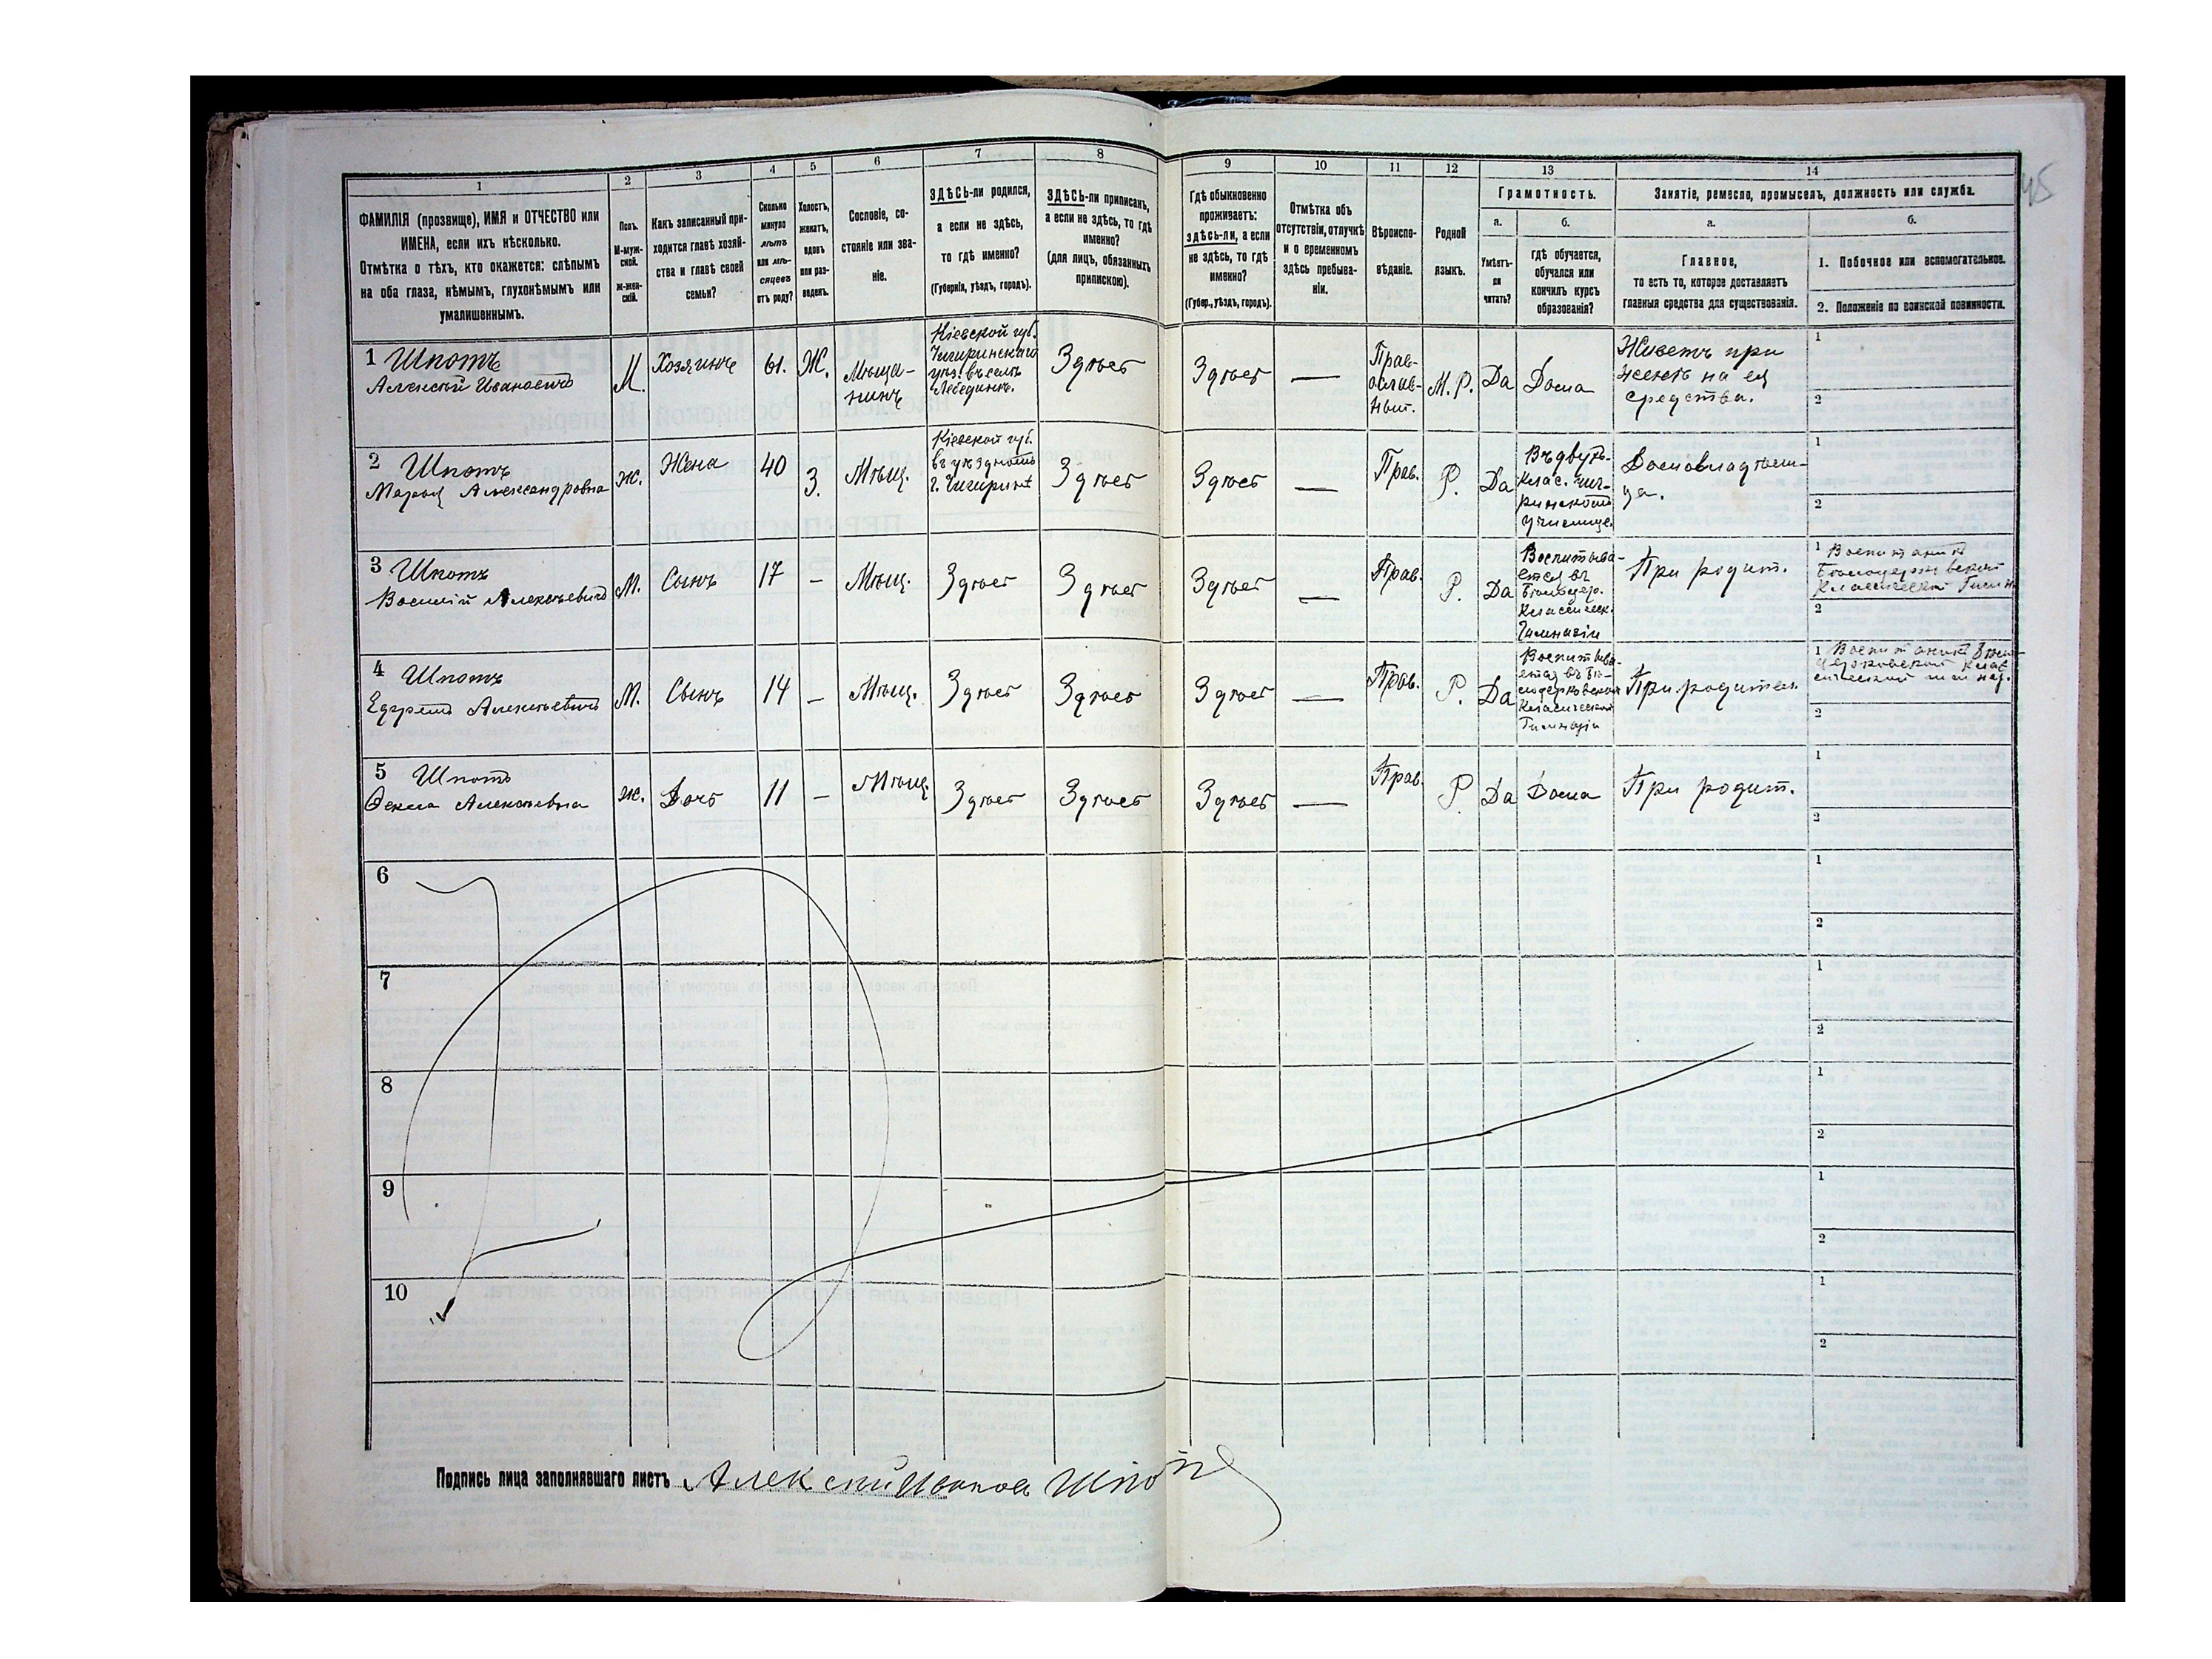 45
1 2 3 4 5 6 7 8 9 10 11 12 13 14
ФАМИЛІЯ (прозвище), ИМЯ и ОТЧЕСТВО или
ИМЕНА, если ихъ нѣсколько.
Отмѣтка о тѣхъ, кто окажется: слѣпымъ
на оба глаза, нѣмымъ, глухонѣмымъ или
умалишеннымъ.
Полъ.
М-муж-
ской.
ж-жен-
скій.
Какъ записанный при-
ходится главѣ хозяй-
ства и главѣ своей
семьи?
Сколько
минуло
лѣтъ
или мѣ-
сяцевъ
отъ роду?
Холостъ,
женатъ,
вдовъ
или раз-
веденъ.
Сословіе, со-
стояніе или зва-
ніе.
ЗДѢСЬ-ли родился,
а если не здѣсь,
то гдѣ именно?
(Губернія, уѣздъ, городъ).
ЗДѢСЬ-ли приписанъ,
а если не здѣсь, то гдѣ
именно?
(для лицъ, обязанныхъ
припискою).
Гдѣ обыкновенно
проживаетъ:
здѣсь-ли, а если
не здѣсь, то гдѣ
именно?
(Губер., уѣздъ, городъ).
Отмѣтка объ
отсутствіи, отлучкѣ
и о временномъ
здѣсь пребыва-
ніи.
Вѣроиспо-
вѣданіе.
Родной
языкъ.
Грамотность.
а.
Умѣетъ-
ли
читать?
б.
гдѣ обучается,
обучался или
кончилъ курсъ
образованія?
Занятіе, ремесло, промыселъ, должность или служба.
а.
Главное,
то есть то, которое доставляетъ
главныя средства для существованія.
б.
1. Побочное или вспомогательное.
2. Положеніе по воинской повинности.
1 Шпотъ
Алексѣй Ивановичъ
М.
Хозяинъ
61.
Ж.
Мѣща-
нинъ
Кіевской губ.
Чигиринскаго
уѣз. въ селѣ
Лебединѣ.
Здѣсь
Здѣсь
—
Прав-
ослав-
ный.
М. Р.
Да
Дома
Живетъ при
женѣ на ея
средства.
1
2
2 Шпотъ
Марья Александровна
ж.
Жена
40
З.
Мѣщ.
Кіевской губ.
въ уѣздномъ
г. Чигиринѣ
Здѣсь
Здѣсь
—
Прав.
Р.
Да
Въ двух-
клас. чиг-
ринскомъ
училище.
Домовладѣли-
ца.
1
2
3 Шпотъ
Василій Алексѣевичъ
М.
Сынъ
17
-
Мѣщ.
Здѣсь
Здѣсь
Здѣсь
—
Прав.
Р.
Да
Воспитыва-
ется въ
Бѣлоцер.
Классическ.
Гимназіи
При родит.
1 Воспитаникъ
Бѣлоцерковской
Классической Гимн.
2
4 Шпотъ
Ефремъ Алексѣевичъ
М.
Сынъ
14
-
Мѣщ.
Здѣсь
Здѣсь
Здѣсь
—
Прав.
Р.
Да
Воспитыва-
ется въ Бѣ-
лоцерковской
Класической
Гимназіи
При родител.
1 Воспитаникъ Бѣло-
церковской клас
сической гимназ.
2
5 Шпотъ
Ѳекла Алексѣевна
ж.
Дочь
11
-
Мѣщ.
Здѣсь
Здѣсь
Здѣсь
—
Прав.
Р
Да
Дома
При родит.
1
2
6
1
2
7
1
2
8
1
2
9
1
2
10
1
2
Подпись лица заполнявшаго листъ Алексѣй Иванов Шпотъ